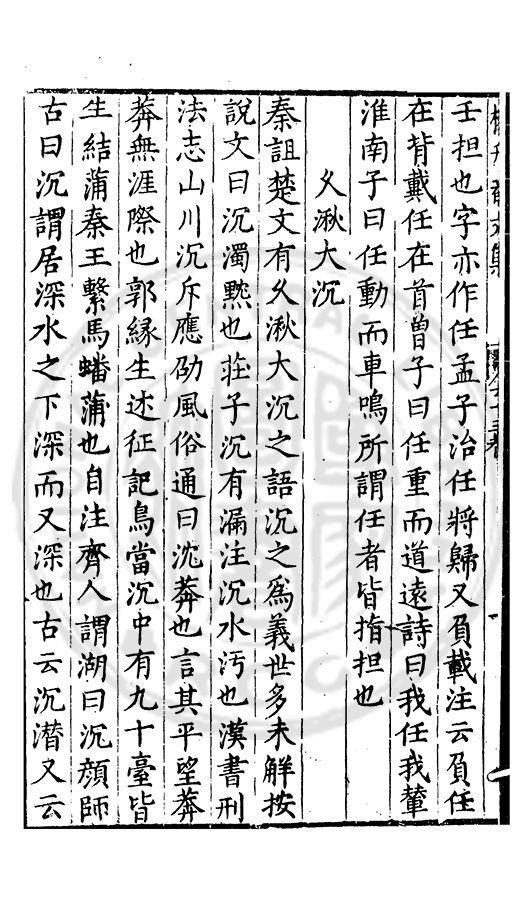 壬担也字亦作任孟子治任將歸又負載注云負任
在背戴任在首曾子曰任重而道遠詩曰我任我輦
淮南子曰任動而車鳴所謂任者皆指担也
久湫大沉
秦詛楚文有久湫大沉之語沉之爲義世多未解按
說文曰沉濁黙也莊子沉有漏注沉水汚也漢書刑
法志山川沉斥應劭風俗通曰沈莽也言其平望莽
莽無涯際也郭緣生述征記鳥當沉中有九十臺皆
生結蒲秦王繫馬蟠蒲也自注齊人謂湖曰沉顔師
古曰沉謂居深水之下深而又深也古云沉潜又云